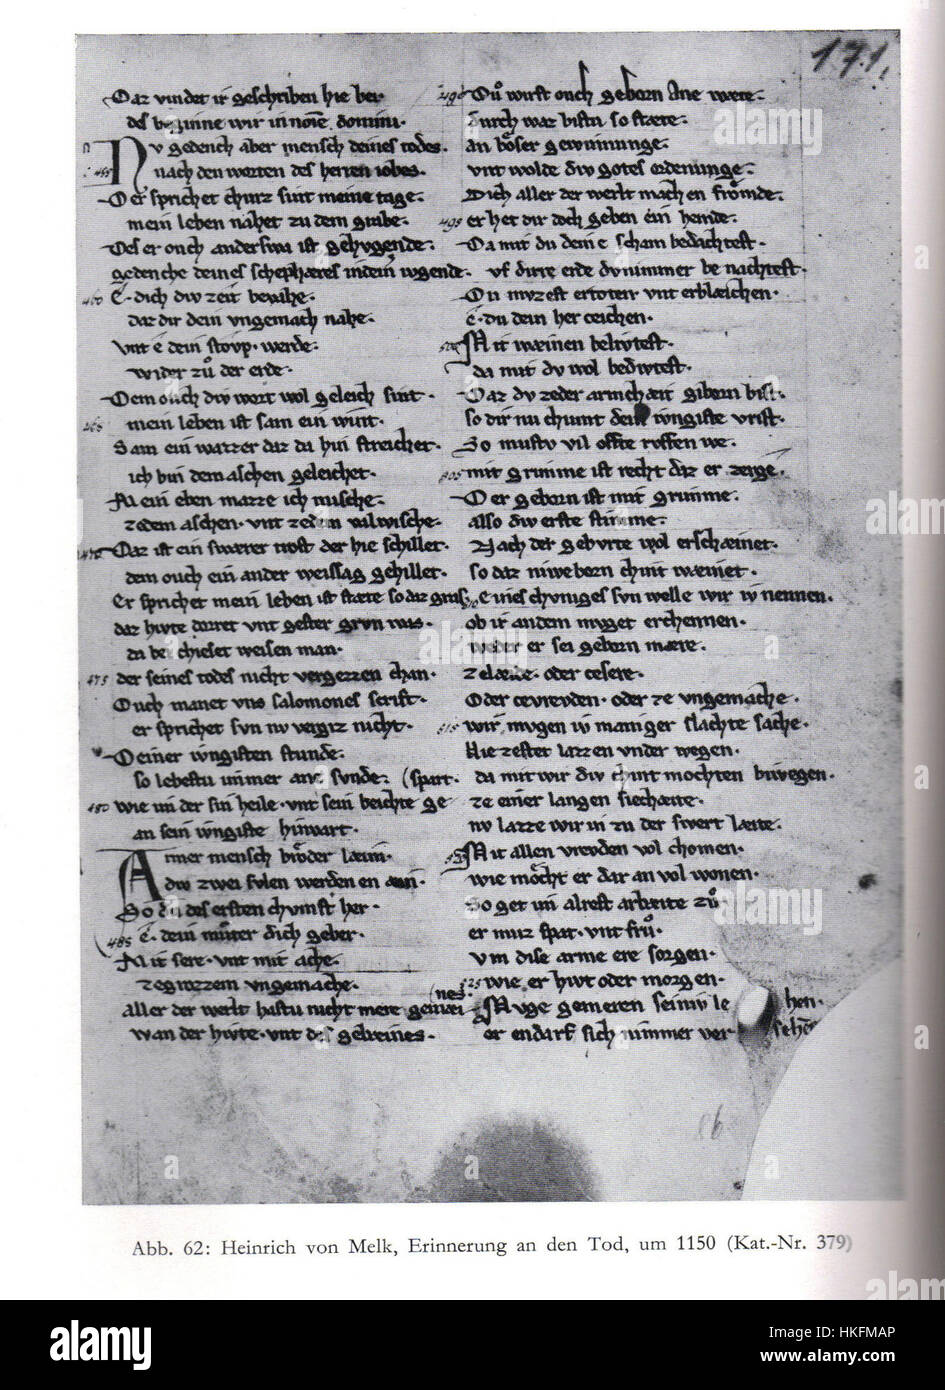 171.
Daz vindet ir geschriben hie bev
des beginne wir in noīe domini·
Nv gedench aber mensch deines todes·
455 nach den worten des herren iobes·
Der sprichet churz sint meine tage·
mein leben nahet zu dem grabe·
Des er ouch anderswa ist gehvgende·
gedenche deines schephæres in dein ivgende·
460 E· dich div zeit begrife·
daz dir dein vngemach nahe·
vnt e dein stovp· werde·
wider zů der erde·
Dem ouch div wort wol geleich sint·
465 mein leben ist sam ein wint·
Sam ein wazzer daz da hin streichet·
ich bin dem aschen geleichet·
Mein eben mazze ich mische·
zedem aschen· vnt zedem valwische·
470 Daz ist ein swærer trost der hie schillet·
dem ouch ein ander weissag gehillet·
Er sprichet mein leben ist stæte so daz gras·
daz hivte dorret vnt gester grvn was·
da bei chieset weisen man·
475 der seines todes nicht vergezzen chan·
Ouch manet vns salomones scrift·
er sprichet svn nv vergiz nicht·
Deiner ivngisten stunde·
so lebestu immer ane svnde· (spart·
480 wie im der sin heile· vnt sein beichte ge
an sein ivngiste hinvart·
Armer mensch brôder læim·
div zwei svlen werden en ain·
So du des ersten chvmst her·
485 e· dein můter dich geber·
Mit sere· vnt mit ache·
zegrozzem vngemache·
(nes·
aller der werlt hastu nicht mere gemei
wan der hivte· vnt des gebeines·
490 Dů wirst ouch geborn ane wæte·
durch waz bistu so stæte·
an bôser gewinnunge·
vnt wolde div gotes ordenunge·
Dich aller der werlt machen frômde·
495 er het dir doch geben ein hemde·
Da mit du deine scham bedachtest·
vf dirre erde dv nimmer be nachtest·
Du mvzest ertoten vnt erblæichen·
e· du dein her zeichen·
500 Mit wæinen belivtest·
da mit dv wol bedivtest·
Daz dv zeder armchæit giborn bist·
so dir nu chumt dein ivngiste vrist·
So mustv vil offte rvffen we·
505 mit grimme ist recht daz er zerge·
Der geborn ist mit grimme·
also div erste stimme·
Nach der gebvrte wol erschæinet·
so daz niwe born chint wæinet·
510 Eines chvniges svn welle wir iv nennen·
ob ir andem mvget erchennen·
weder er sei geborn mære·
zelæide· oder ce sere·
Oder cevrevden· oder ze vngemache·
515 wir mvgen iv maniger slachte sache·
Hie zester lazzen vnder wegen·
da mit wir div chint mochten biwegen·
ze einer langen siechæite·
nv lazze wir in zu der swert læite·
520 Mit allen vrevden wol chomen·
wie môcht er dar an wol wonen·
So get im alrest arbæite zů·
er muz spat· vnt frů·
vm dise arme ere sorgen·
525 wie er hivt oder morgen·
Mvge gemeren seiniv le hen·
er endarf sich nimmer ver sehēn
Abb. 62: Heinrich von Melk, Erinnerung an den Tod, um 1150 (Kat.-Nr. 379)
alamy
Image ID: HKFMAP
www.alamy.com